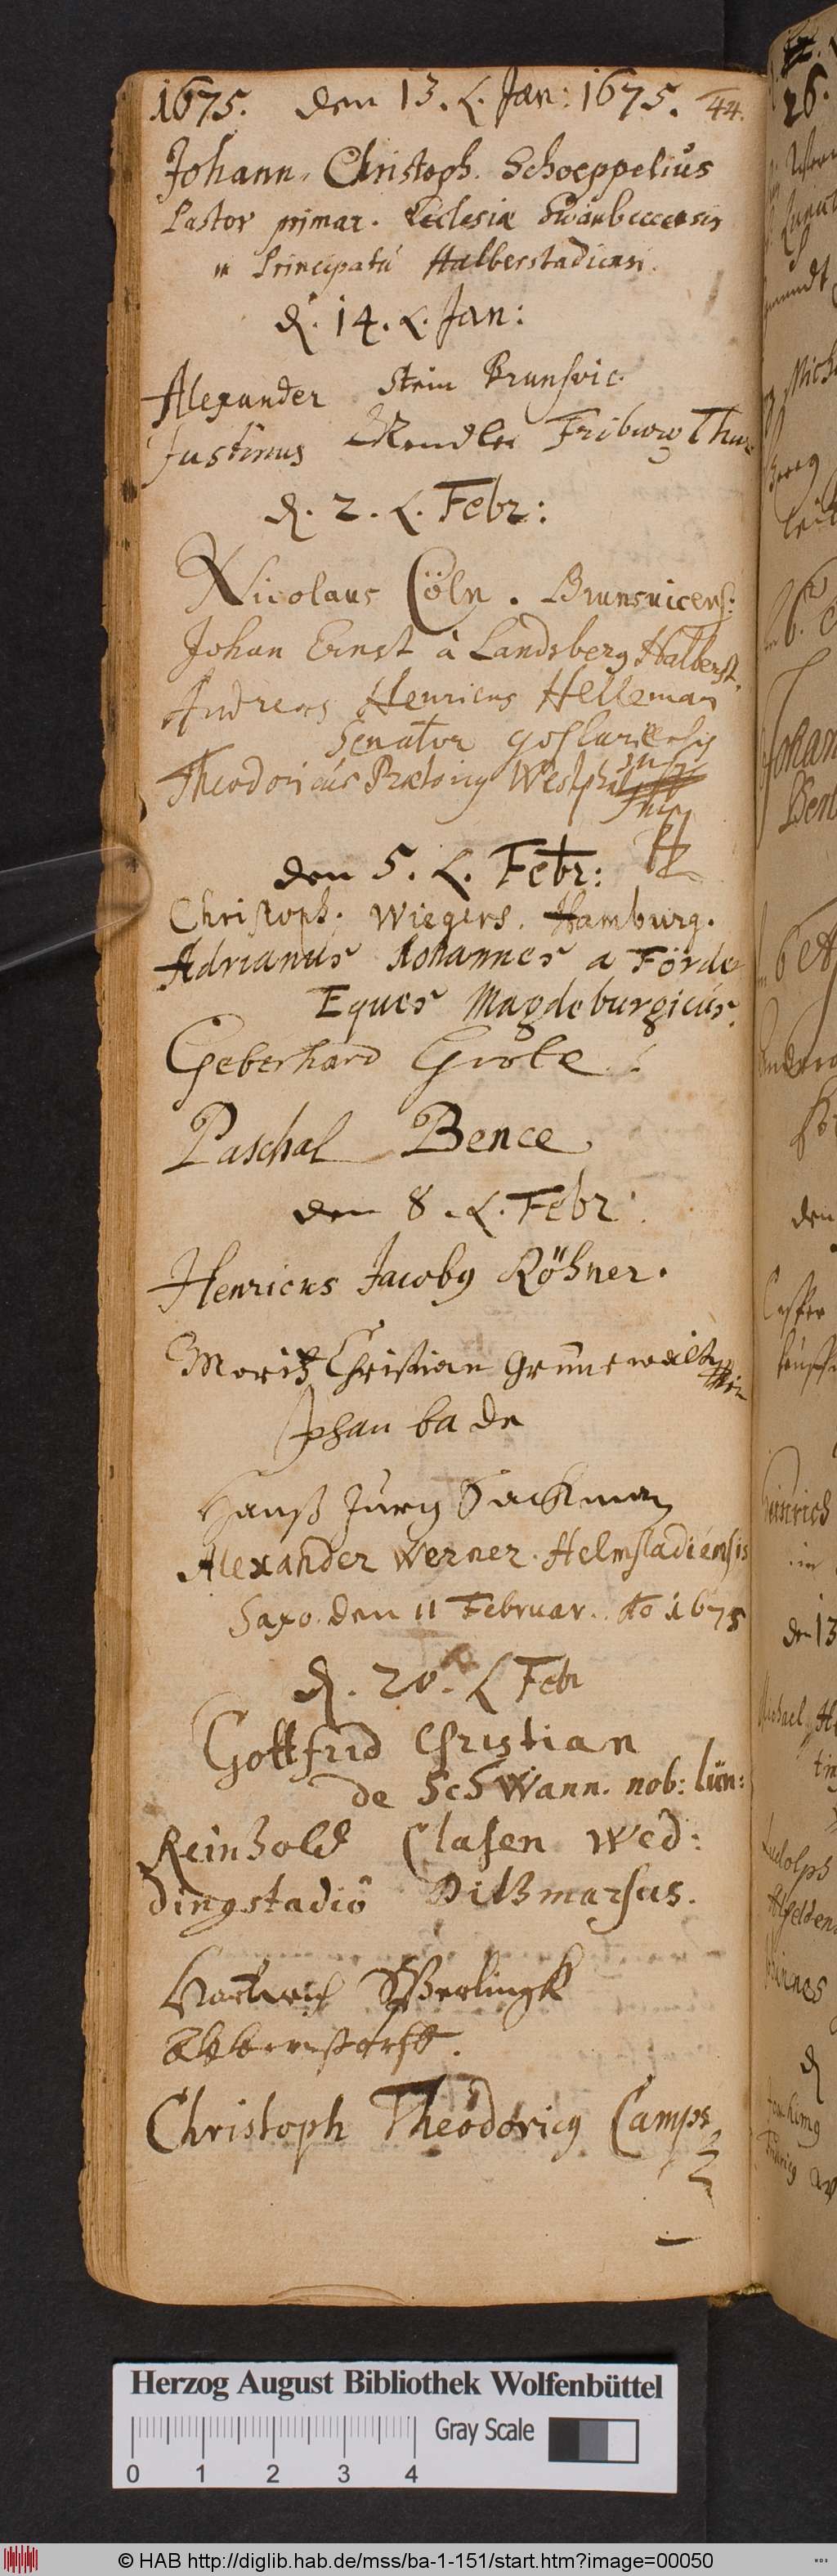 1675. den 13. L. Jan: 1675. 44.
Johann. Christoph. Schoeppelius
Pastor primar. Ecclesiæ Swanbeccensis
in Principatu Halberstadiensi.
d. 14. L. Jan:
Alexander Stein Brunsvic.
Justinus Friburg Thur
d. 2. L. Febr:
Nicolaus Cöln. Brunsvicens:
Johan Ernst à Landsberg Halberst.
Andreas Henricus Helleman
Senator goslariensis
Theodoricus Prætorius Westph
den 5. L. Febr:
Christoph. Wiegers. Hamburg.
Adrianus Johannes a Förder
Eques Magdeburgicus.
Geberhard Grote
Paschal Bence
den 8. L. Febr:
Henricus Jacobus Röhner.
Moritz Christian Grunewalt
Johan bade
Hanß Jürg Sackman
Alexander Werner. Helmstadiensis
Saxo. den 11 Februar. Ao 1675
d. 20. L Febr
Gottfrid Christian
de Schwann. nob: lün:
Reinhold Clasen Wed:
dingstadiô Dithmarsus.
Hartwich Sperlingk
Christoph Theodoricus Camps
Herzog August Bibliothek Wolfenbüttel
Gray Scale
0 1 2 3 4
© HAB http://diglib.hab.de/mss/ba-1-151/start.htm?image=00050